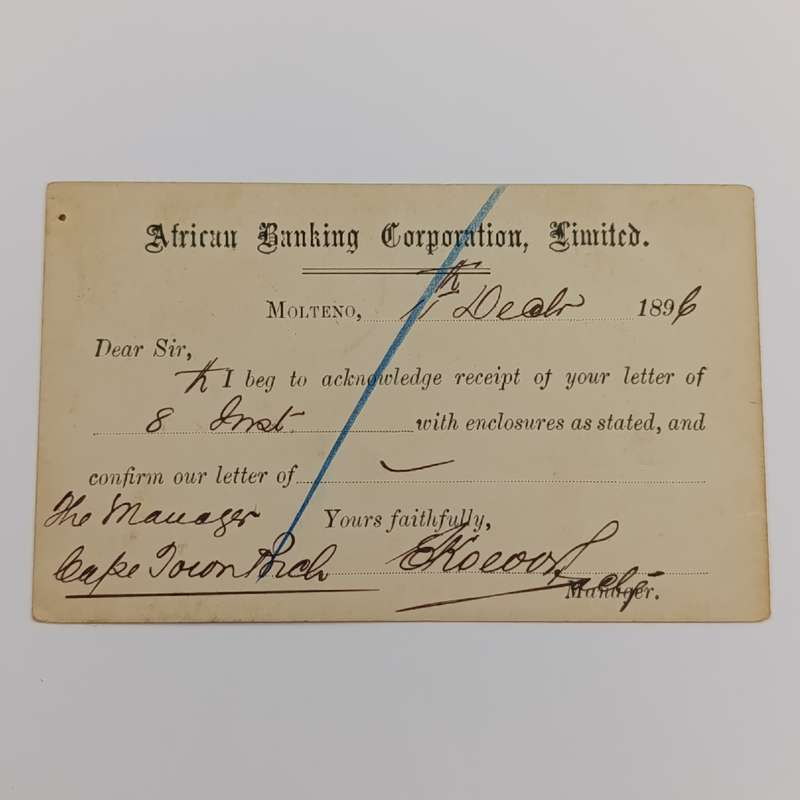 African Banking Corporation, Limited.
MOLTENO, 11th Decbr 1896
Dear Sir,
I beg to acknowledge receipt of your letter of
8th Inst. with enclosures as stated, and
confirm our letter of
The Manager Yours faithfully,
Cape Town Brch
Manager.